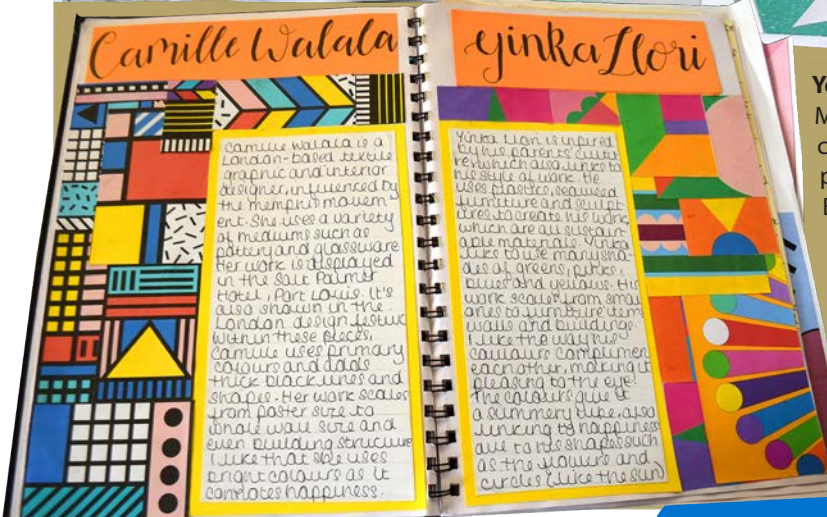 Camille Walala
Camille Walala is a
London-based textile
graphic and interior
designer, influenced by
the memphis movem
ent. She uses a variety
of mediums such as
pottery and glassware
Her work is displayed
in the Salt Palmar
Hotel, Port Louis. It's
also shown in the
London design festive
Within these pieces,
Camille uses primary
colours and adds
thick black lines and
shapes. Her work scales
from poster size to
whole wall size and
even building structure
I like that she uses
bright colours as it
connotes happiness.
Yinka Ilori
Yinka Ilori is inspired
by his parents' cultu
re which also links to
his style of work. He
uses plastics, seaweed
furniture and sculpt
ures to create his work,
which are all sustain
able materials. Yinka
likes to use many sha
des of greens, pinks,
blues and yellows. His
work scales from smal
ones to furniture item
walls and buildings.
I like the way his
colours complimen
each other, making it
pleasing to the eye.
The colours give it
a summery vibe, also
linking to happiness
due to his shapes such
as the flowers and
circles (like the sun)